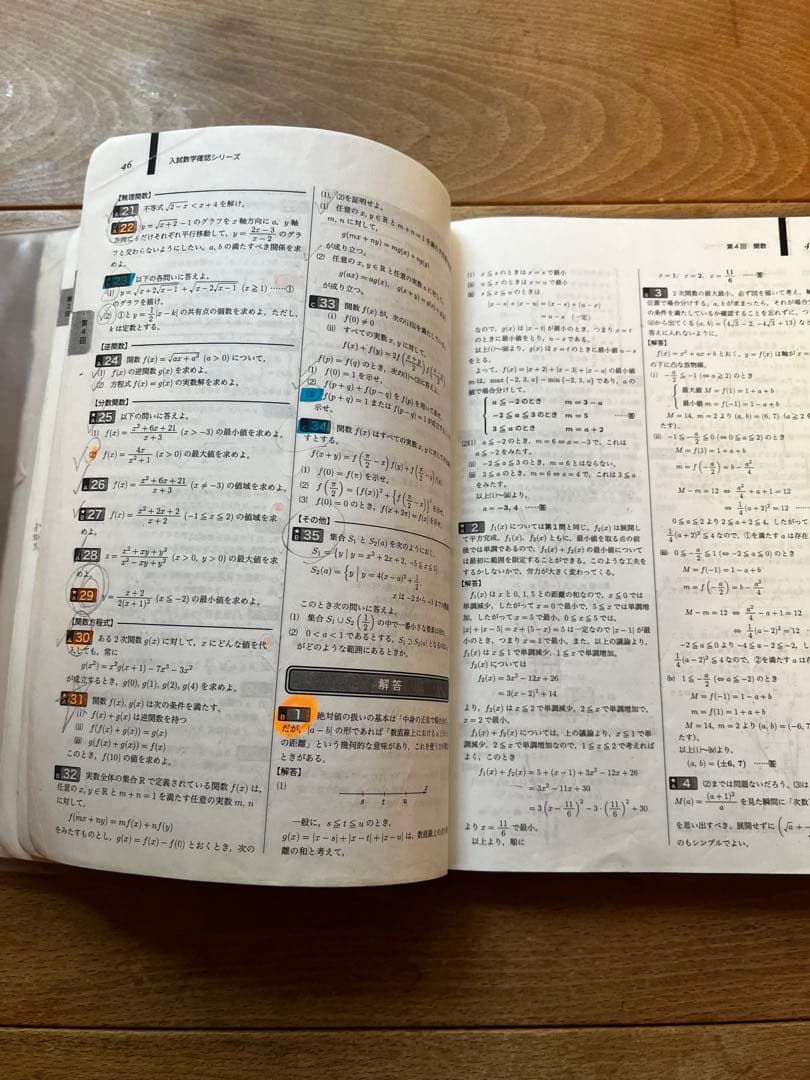 46
入試数学確認シリーズ
【無理関数】
21 不等式 √2−x < x+4 を解け．
22 y=√x+2 −1 のグラフを x 軸方向に a, y 軸
方向に b だけそれぞれ平行移動して, y=(2x−3)/(x−2) のグラ
フと交わらないようにしたい。a, b の満たすべき関係を求
めよ。
以下の各問いに答えよ。
(1) y=√x+2√x−1+√x−2√x−1 (x≧1) ……①
のグラフを描け。
(2) ①と y=1/2|x−k| の共有点の個数を求めよ。ただし,
k は定数とする。
【逆関数】
24 関数 f(x)=√ax+a² (a>0) について,
(1) f(x) の逆関数 g(x) を求めよ。
(2) 方程式 f(x)=g(x) の実数解を求めよ。
【分数関数】
25 以下の問いに答えよ。
(1) f(x)=(x²+6x+21)/(x+3) (x>−3) の最小値を求めよ。
(2) f(x)=4x/(x²+1) (x>0) の最大値を求めよ。
26 f(x)=(x²+6x+21)/(x+3) (x≠−3) の値域を求めよ。
27 f(x)=(x²+2x+2)/(x+2) (−1≦x≦2) の値域を求めよ。
28 z=(x²+xy+y²)/(x²−xy+y²) (x>0, y>0) の最大値を求
めよ。
29 z=(x+2)/(2(x+1)²) (x≦−2) の最小値を求めよ。
【関数方程式】
30 ある2次関数 g(x) に対して, x にどんな値を代
入しても, 常に
g(x²)=x²g(x+1)−7x³−3x²
が成立するとき, g(0), g(1), g(2), g(4) を求めよ。
31 関数 f(x), g(x) は次の条件を満たす。
(i) f(x) は逆関数を持つ
(ii) f(f(x)+g(x))=g(x)
(iii) g(f(x)+g(x))=f(x)
このとき, f(10) の値を求めよ。
32 実数全体の集合 R で定義されている関数 f(x) は,
任意の x, y∈R と m+n=1 を満たす任意の実数 m, n
に対して,
f(mx+ny)=mf(x)+nf(y)
をみたすものとし, g(x)=f(x)−f(0) とおくとき, 次の
(1), (2)を証明せよ。
(1) 任意の x, y∈R と m+n=1 を
m, n に対して,
g(mx+ny)=mg(x)+ng(y)
が成り立つ。
(2) 任意の x, y∈R と任意の実数 a に対し,
g(ax)=ag(x), g(x+y)=g(x)
が成り立つ。
33 関数 f(x) が, 次の
(i) f(0)≠0
(ii) すべての実数 x, y に対して,
f(x)+f(y)=2f((x+y)/2)f((x−y)/2)
f(p)=f(q) のとき, 次の
(1) f(0)=1 を示せ。
(2) f(p+q)=f(p−q) または
f(p+q)=1 または f(p−q)=1
示せ。
34 関数 f(x) はすべての実数 x, y に
すとする。
f(x+y)=f(π/2−x)f(y)+f(π/2−y)
(1) f(0)=f(π) を示せ。
(2) f(π/2)={f(x)}²+{f(π/2−x)}² を示せ。
(3) f(0)=0 のとき, f(x+2π)=f(x) を示せ。
【その他】
35 集合 S₁ と S₂(a) を次のようにおく。
S₁={y|y=x²+2x+2, −5≦x≦5}
S₂(a)={y|y=4(x−a)²+1/2,
x は −2 から −1 までの
このとき次の問いに答えよ。
(1) 集合 S₁∪S₂(1/2) の中で一番小さな要素は
(2) 0<a<1 であるとする。S₁⊃S₂(a) となるのは
がどのような範囲にあるときか。
解答
1 絶対値の扱いの基本は「中身の正負で場合
だが, |a−b| の形であれば「数直線上における a と b
の距離」という幾何的な意味があり, これを使うが
ときがある。
【解答】
(1)
s t u
一般に, s≦t≦u のとき,
g(x)=|x−s|+|x−t|+|x−u| は, 数直線上の
離の和と考えて,
第4回
第4回 関数
(i) x≦s のときは x=s で最小
(ii) x≧u のときは x=u で最小
(iii) s≦x≦u のときは
|x−s|+|x−u|=(x−s)+(u−x)
=u−s (一定)
なので, g(x) は |x−t| が最小のとき, つまり x=t
のときに最小値をとり, u−s である。
以上(i)～(iii)より, g(x) は x=t のときに最小値 u−s
をとる。
よって, f(x)=|x+2|+|x−3|+|x−a| の最小値
m は, max{−2, 3, a}−min{−2, 3, a} であり, a の
値で場合分けして,
a≦−2 のとき m=3−a
−2≦a≦3 のとき m=5 ……答
3≦a のとき m=a+2
(2)(i) a≦−2 のとき, m=6⇔a=−3 で, これは
a≦−2 をみたす。
(ii) −2≦a≦3 のとき, m=6 とはならない。
(iii) 3≦a のとき, m=6⇔a=4 で, これは 3≦a を
みたす。
以上(i)～(iii)より,
a=−3, 4 ……答
2 f₁(x) については第1問と同じ, f₂(x) は展開し
て平方完成。f₁(x), f₂(x) ともに, 最小値を取る点の前
後では単調であるので, f₁(x)+f₂(x) の最小値について
は最初に範囲を限定することができる。このような工夫
をするかしないかで, 労力が大きく変わってくる。
【解答】
f₁(x) は x と 0, 1, 5 との距離の和なので, x≦0 では
単調減少, したがって x=0 で最小で, 5≦x では単調増
加, したがって x=5 で最小で, 0≦x≦5 では,
|x|+|x−5|=x+(5−x)=5 は一定なので |x−1| が最
小のとき, つまり x=1 で最小。また, 以上の議論より,
f₁(x) は x≦1 で単調減少, 1≦x で単調増加。
f₂(x) については
f₂(x)=3x²−12x+26
=3(x−2)²+14
より, f₂(x) は x≦2 で単調減少, 2≦x で単調増加で,
x=2 で最小。
f₁(x)+f₂(x) については, 上の議論より, x≦1 で単
調減少, 2≦x で単調増加なので, 1≦x≦2 で考えれば
よく, このとき
f₁(x)+f₂(x)=5+(x−1)+3x²−12x+26
=3x²−11x+30
=3(x−11/6)²−3・(11/6)²+30
より x=11/6 で最小。
以上より, 順に
x=1, x=2, x=11/6 ……答
3 2次関数の最大最小, 必ず図を描いて考え,
位置で場合分けする。a, b が求まったら, それが場合
の条件を満たしているか確認することを忘れずに。
から出てくる (a, b)=(4√3−2, −4√3+13) など
答えに入れないように。
【解答】
f(x)=x²+ax+b とおく。y=f(x) は軸が x=
の下に凸な放物線。
(i) −a/2≦−1 (⇔a≧2) のとき
最大値 M=f(1)=1+a+b
最小値 m=f(−1)=1−a+b
M=14, m=2 より (a, b)=(6, 7) (a≧2 を
す)
(ii) −1≦−a/2≦0 (⇔0≦a≦2) のとき
M=f(1)=1+a+b
m=f(−a/2)=b−a²/4
M−m=12 ⇔ a²/4+a+1=12
⇔ 1/4(a+2)²=12 ……
0≦a≦2 より 2≦a+2≦4, したがって
1/4(a+2)²≦4 なので, ①を満たす a は存在
(iii) 0≦−a/2≦1 (⇔−2≦a≦0) のとき
M=f(−1)=1−a+b
m=f(−a/2)=b−a²/4
M−m=12 ⇔ a²/4−a+1=12
⇔ 1/4(a−2)²=12
−2≦a≦0 より −4≦a−2≦−2, し
1/4(a−2)²≦4 なので, ②を満たす a は存
(iv) 1≦−a/2 (⇔a≦−2) のとき
M=f(−1)=1−a+b
m=f(1)=1+a+b
M=14, m=2 より (a, b)=(−6, 7)
たす)
以上(i)～(iv)より,
(a, b)=(±6, 7) ……答
4 (2)までは問題ないだろう。
M(a)=(a+1)²/a を見た瞬間に「次数
を思い出すべき。展開せずに (√a+
のもシンプルでよい。